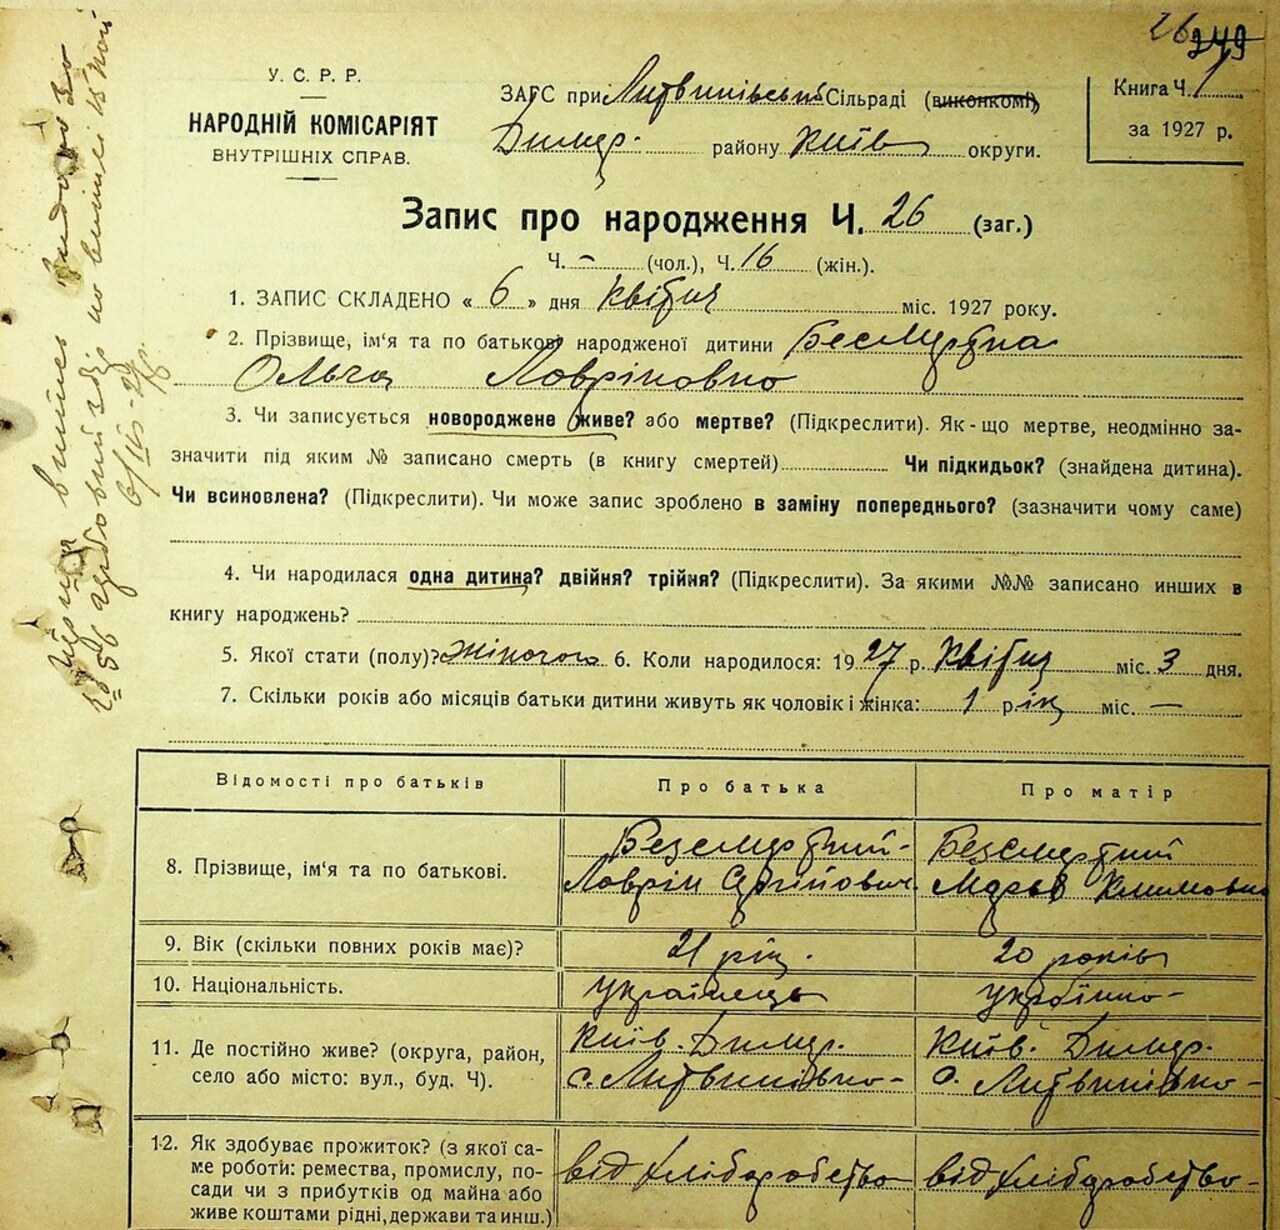 26 249
У. С. Р. Р.
НАРОДНІЙ КОМІСАРІЯТ
ВНУТРІШНІХ СПРАВ.
ЗАГС при Литвинівський Сільраді (виконкомі)
Димер. району Київ округи.
Книга Ч. 1
за 1927 р.
Запис про народження Ч. 26 (заг.)
Ч. – (чол.), Ч. 16 (жін.).
1. ЗАПИС СКЛАДЕНО « 6 » дня Квітня міс. 1927 року.
2. Прізвище, ім'я та по батькові народженої дитини Бесмертна
Ольга Лавріновна
3. Чи записується новороджене живе? або мертве? (Підкреслити). Як-що мертве, неодмінно за-
значити під яким № записано смерть (в книгу смертей) Чи підкидьок? (знайдена дитина).
Чи всиновлена? (Підкреслити). Чи може запис зроблено в заміну попереднього? (зазначити чому саме)
4. Чи народилася одна дитина? двійня? трійня? (Підкреслити). За якими №№ записано инших в
книгу народжень?
5. Якої стати (полу)? Жіночого 6. Коли народилося: 1927 р. Квітня міс. 3 дня.
7. Скільки років або місяців батьки дитини живуть як чоловік і жінка: 1 рік міс. —
Відомості про батьків
Про батька
Про матір
8. Прізвище, ім'я та по батькові.
Безсмертний
Лаврін Сергійович
Безсмертний
Марія Климовна
9. Вік (скільки повних років має)?
21 рік.
20 років
10. Національність.
Українець
Українка
11. Де постійно живе? (округа, район,
село або місто: вул., буд. Ч).
Київ. Димер.
с. Литвинівка
Київ. Димер.
с. Литвинівка
12. Як здобуває прожиток? (з якої са-
ме роботи: ремества, промислу, по-
сади чи з прибутків од майна або
живе коштами рідні, держави та инш.)
від хліборобства
від хліборобства